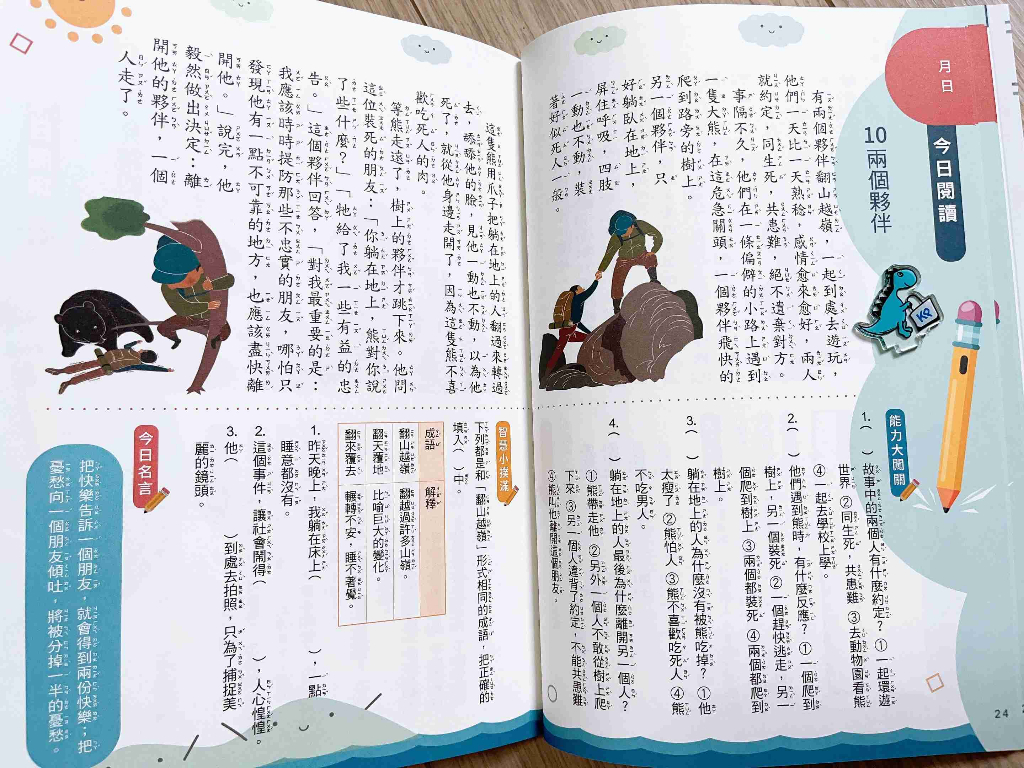 月 日
今日閱讀
10 兩個夥伴
有兩個夥伴翻山越嶺，一起到處去遊玩，
他們一天比一天熟稔，感情愈來愈好，兩人
就約定，同生死，共患難，絕不遺棄對方。
事隔不久，他們在一條偏僻的小路上遇到
一隻大熊，在這危急關頭，一個夥伴飛快的
爬到路旁的樹上。
另一個夥伴，只
好躺臥在地上，
屏住呼吸，四肢
一動也不動，裝
著好似死人一般。
這隻熊用爪子把躺在地上的人翻過來轉過
去，舔舔他的臉，見他一動也不動，以為他
死了，就從他身邊走開了，因為這隻熊不喜
歡吃死人的肉。
等熊走遠了，樹上的夥伴才跳下來。他問
這位裝死的朋友：「你躺在地上，熊對你說
了些什麼？」「牠給了我一些有益的忠
告。」這個夥伴回答，「對我最重要的是：
我應該時時提防那些不忠實的朋友，哪怕只
發現他有一點不可靠的地方，也應該盡快離
開他。」說完，他
毅然做出決定：離
開他的夥伴，一個
人走了。
KP
能力大闖關
1.（ ）故事中的兩個人有什麼約定？①一起環遊
世界 ②同生死，共患難 ③去動物園看熊
④一起去學校上學。
2.（ ）他們遇到熊時，有什麼反應？①一個爬到
樹上，另一個裝死 ②一個趕快逃走，另一
個爬到樹上 ③兩個都裝死 ④兩個都爬到
樹上。
3.（ ）躺在地上的人為什麼沒有被熊吃掉？①他
太瘦了 ②熊怕人 ③熊不喜歡吃死人 ④熊
不吃男人。
4.（ ）躺在地上的人最後為什麼離開另一個人？
①熊帶走他 ②另外一個人不敢從樹上爬
下來 ③另一個人違背了約定，不能共患難
④熊叫他離開這個朋友。
24
智慧小撲滿
下列都是和「翻山越嶺」形式相同的成語，把正確的
填入（ ）中。
成語 解釋
翻山越嶺 翻越過許多山嶺。
翻天覆地 比喻巨大的變化。
翻來覆去 輾轉不安，睡不著覺。
1. 昨天晚上，我躺在床上（ ），一點
睡意都沒有。
2. 這個事件，讓社會鬧得（ ），人心惶惶。
3. 他（ ）到處去拍照，只為了捕捉美
麗的鏡頭。
今日名言
把快樂告訴一個朋友，就會得到兩份快樂；把
憂愁向一個朋友傾吐，將被分掉一半的憂愁。